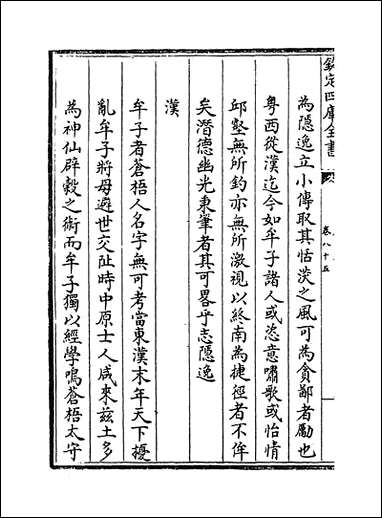 欽定四庫全書
卷八十五
為隱逸立小傳取其恬淡之風可為貪鄙者勵也
粵西從漢迄今如牟子諸人或恣意嘯歌或怡情
邱壑無所釣亦無所激視以終南為捷徑者不侔
矣潛德幽光秉筆者其可畧乎志隱逸
漢
牟子者蒼梧人名字無可考當東漢末年天下擾
亂牟子將母避世交趾時中原士人咸來兹土多
為神仙辟穀之術而牟子獨以經學鳴蒼梧太守